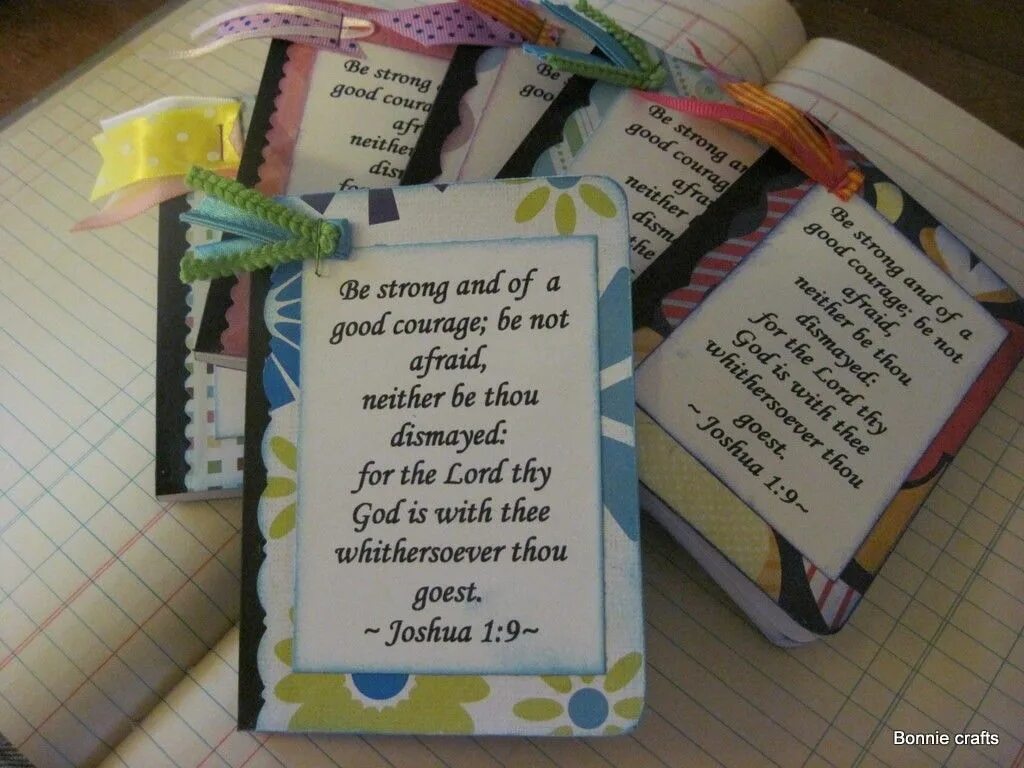 Be strong and of a
good courage; be not
afraid,
neither be thou
dismayed:
for the Lord thy
God is with thee
whithersoever thou
goest.
~ Joshua 1:9~
Be strong and of a
good courage; be not
afraid,
neither be thou
dismayed:
for the Lord thy
God is with thee
whithersoever thou
goest.
~ Joshua 1:9~
Be strong
good coura
afr
neither
dism
fo
Be
goo
Be strong an
good courage
afra
neither
dism
the
Bonnie crafts